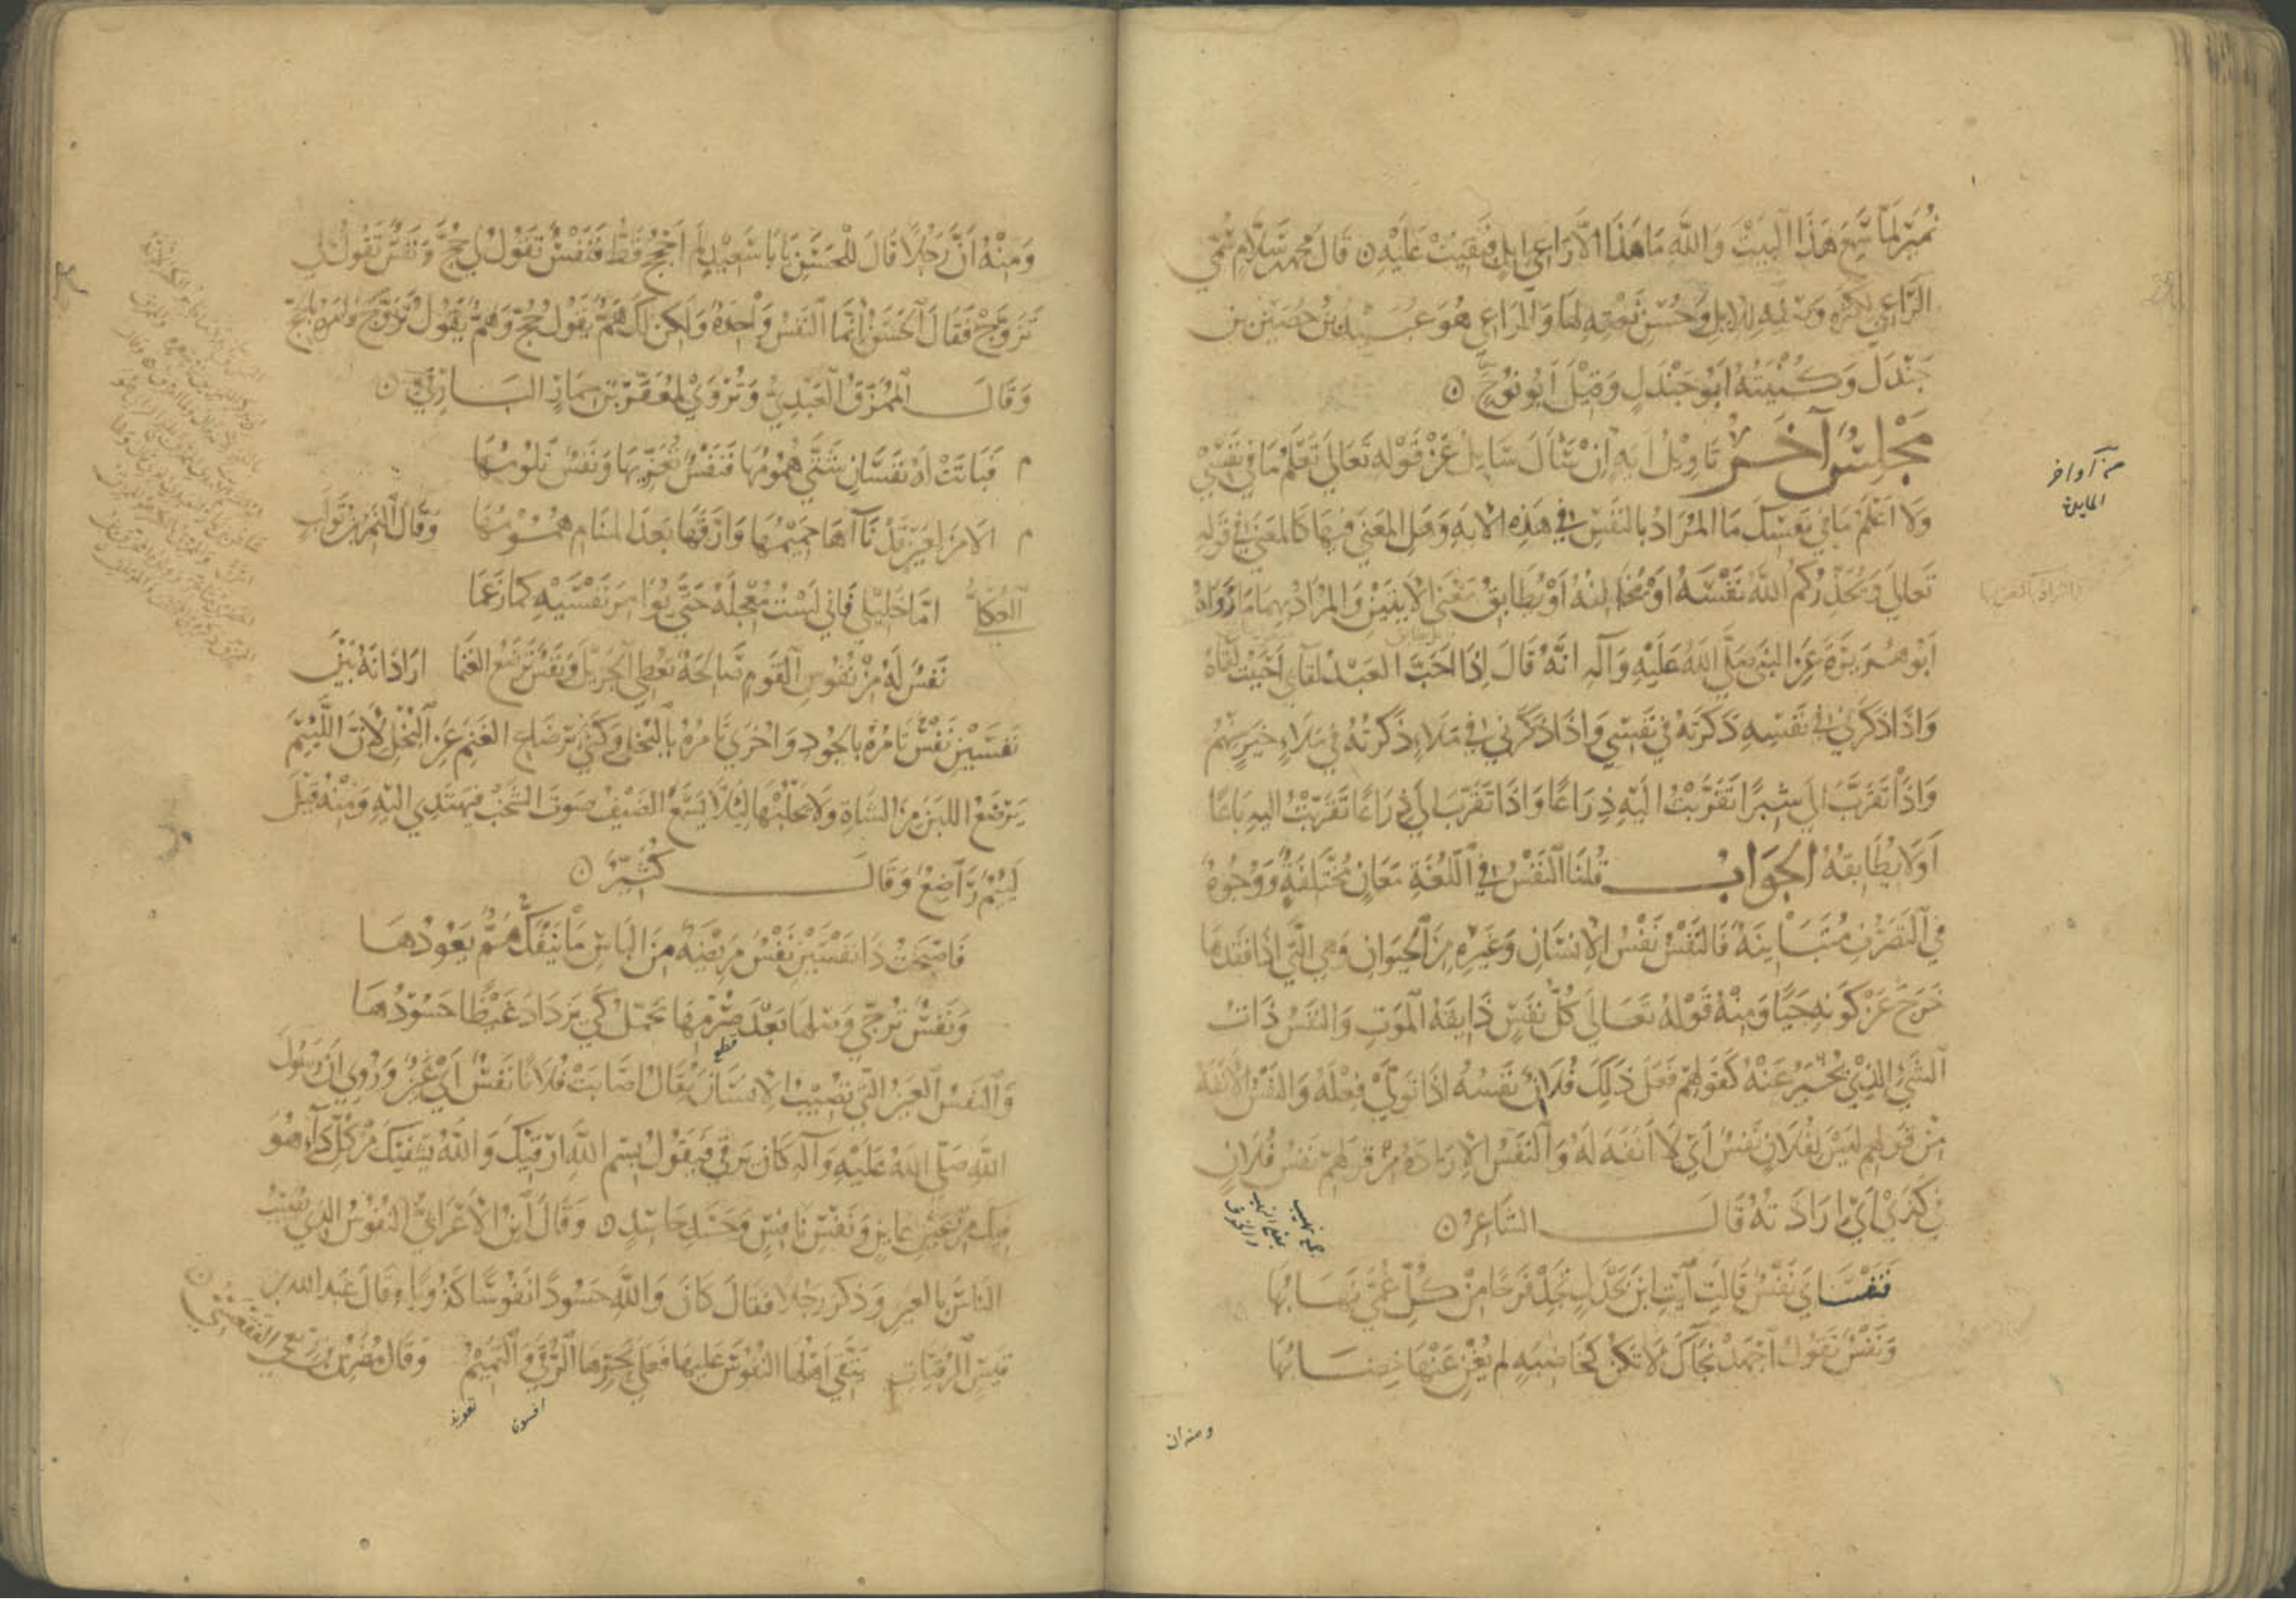 نمير لما سمع هذا البيت والله ما هذا الا راعي ابل فبقيت عليه ٥ قال محمد بن سلام سمي
الراعي لكثرة وصفه للابل وحسن نعته لها والراعي هو عبيد بن حصين بن
جندل وكنيته ابو جندل وقيل ابو نوح ٥
مجلس آخر تاويل آية ان سأل سايل عن قوله تعالى تعلم ما في نفسي
ولا اعلم ما في نفسك ما المراد بالنفس في هذه الاية وهل المعنى فيها كالمعنى في قوله
تعالى ويحذركم الله نفسه او مخالفة او يطابق معنى الايتين والمراد بهما ما رواه
ابو هريرة عن النبي صلى الله عليه وآله انه قال اذا احب العبد لقاي احببت لقاه
واذا ذكرني في نفسه ذكرته في نفسي واذا ذكرني في ملاء ذكرته في ملاء خير منهم
واذا تقرب الي شبرا تقربت اليه ذراعا واذا تقرب الي ذراعا تقربت اليه باعا
او لا يطابقه الجواب قلنا النفس في اللغة معان مختلفة ووجوه
في التصرف متباينة فالنفس نفس الانسان وغيره من الحيوان وهي التي اذا فقدها
خرج عن كونه حيا ومنه قوله تعالى كل نفس ذايقة الموت والنفس ذات
الشي الذي يخبر عنه كقولهم فعل ذلك فلان نفسه اذا تولى فعله والنفس الانفة
من قولهم ليس لفلان نفس اي لا انفة له والنفس الارادة من قولهم نفس فلان
في كذى اي ارادته قال الشاعر ٥
فنفساي نفس قالت آيت ابن بحدل تجد فرجا من كل غمى تهابها
ونفس تقول اجهد نجاك لا تكن كخاضبة لم يغن عنها خضابها
من آواخر
المايدة
ومنه ان
ومنه ان رجلا قال للحسن يا با سعيد لم احجج قط فنفس تقول لي حج ونفس تقول لي
تزوج فقال الحسن انما النفس واحدة ولكن لك هم يقول حج وهم يقول تزوج وامره بالحج
وقال الممزق العبدي وتروى لمعقر بن حمار البارقي ٥
م فباتت له نفسان شتى همومها فنفس تعزيها ونفس تلومها
م الا من لعين قد نآها حميمها وارقها بعد المنام همومها وقال النمر بن تولب
العكلي اما خليلي فاني لست معجله حتى يوامر نفسيه كما زعما
نفس له من نفوس القوم صالحة تعطي الجزيل ونفس ترضع الغنما اراد انه بين
نفسين نفس تامره بالجود واخرى تامره بالبخل وكنى برضاع الغنم عن البخل لان اللئيم
يرضع اللبن من الشاة ولا يحلبها لئلا يسمع الضيف صوت الشخب فيهتدي اليه ومنه قيل
ليئم راضع وقال كثير ٥
فاصبحت ذا نفسين نفس مريضة من الناس ما ينفك هم يعودها
ونفس ترجي وصلها بعد صرمها تجمل كي يزداد غيظا حسودها
والنفس العين التي تصيب الانسان يقال اصابت فلانا نفس اي عين وروي ان رسول
الله صلى الله عليه وآله كان يرقي فيقول بسم الله ارقيك والله يشفيك من كل دآء هو
فيك من عين عاين ونفس نافس وحسد حاسد ٥ وقال ابن الاعرابي النفوس الذي تصيب
الناس بالعين وذكر رجلا فقال كان والله حسودا نفوسا كذوبا وقال عبد الله بن
قيس الرقيات يتقي اهلها النفوس عليها فعلى نحرها الرقى والتميم وقال مضرس بن ربعي الفقعسي ٥
افسون
تعويذ